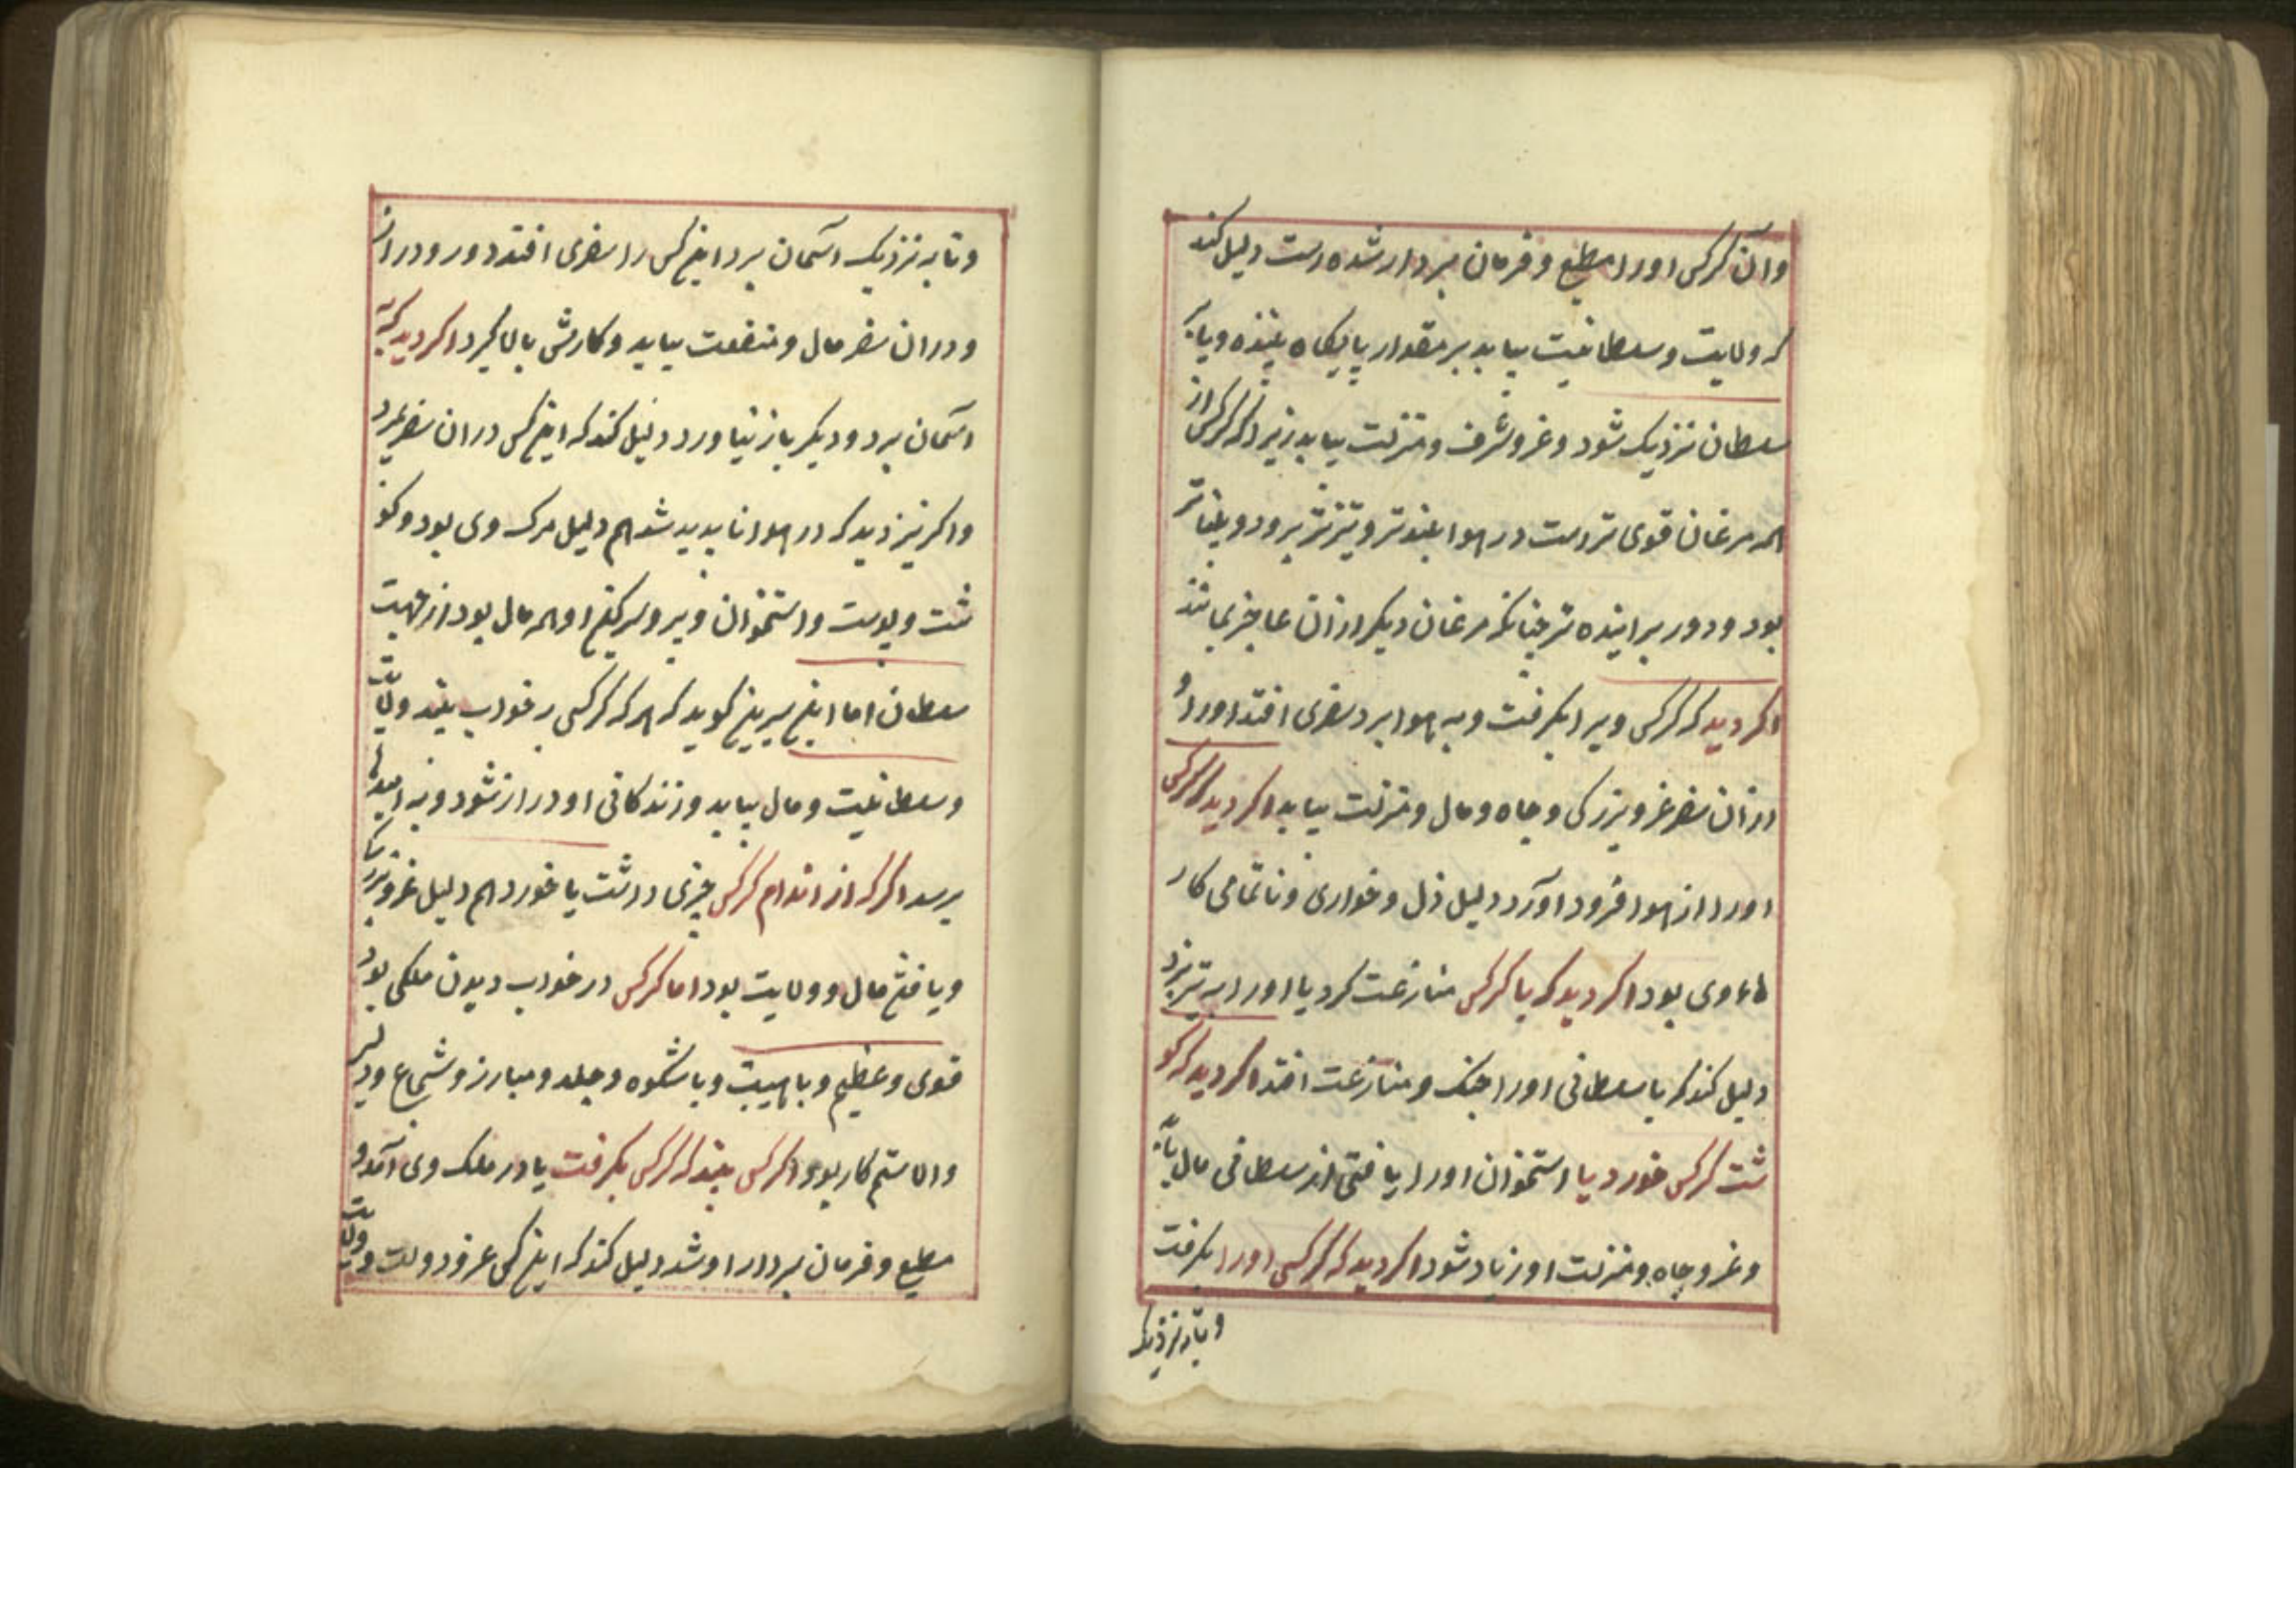 وآن کرکس اورا مطیع و فرمان بردار شده است دلیل کند
که ولایت و سلطانیت بیابد بر مقدار پایکاه بیننده و یا به
سلطان نزدیک شود و عز و شرف و منزلت بیابد زیرا که کرکس از
همه مرغان قوی تر است در هوا بلندتر و تیزتر برود و بیناتر
بود و دور پراینده تر چنانکه مرغان دیکر ازان عاجز بمانند
اکر دید که کرکس ویرا بکرفت و به هوا برد سفری افتد اورا و
ازان سفر عز و بزرکی و جاه و مال و منزلت بیابد اکر دید که کرکس
اورا از هوا فرود آورد دلیل ذل و خواری و ناتمامی کار
هاء وی بود اکر دید که با کرکس منازعت کرد یا اورا به تیر بزد
دلیل کند که با سلطانی اورا جنک و منازعت افتد اکر دید که کو
شت کرکس خورد یا استخوان اورا یافتی از سلطانی مال یابد
و عز و جاه و منزلت او زیاد شود اکر دید که کرکس اورا بکرفت
و تا به نزدیک
و تا به نزدیک آسمان برد این کس را سفری افتد دور و دراز
و دران سفر مال و منفعت بیابد و کارش بالا کیرد اکر دید که به
آسمان برد و دیکر باز نیاورد دلیل کند که این کس دران سفر بمیرد
و اکر نیز دید که در هوا ناپدید شد هم دلیل مرک وی بود و کو
شت و پوست و استخوان و پر و سرکین او همه مال بود از جهت
سلطان اما ابن سیرین کوید که هرکه کرکس در خواب بیند ولایت
و سلطانیت و مال بیابد و زندکانی او دراز شود و به امیدها
برسد اکر که از اندام کرکس چیزی داشت یا خورد هم دلیل عز و بزرکی
و یافتن مال و ولایت بود اما کرکس در خواب دیدن ملکی بود
قوی و عظیم و با هیبت و با شکوه و جلد و مبارز و شجاع و دلیر
والا ستم کار بود اکر کسی بیند که کرکس بکرفت یا در ملک وی آمد و
مطیع و فرمان بردار او شد دلیل کند که این کس عز و دولت و ولایت